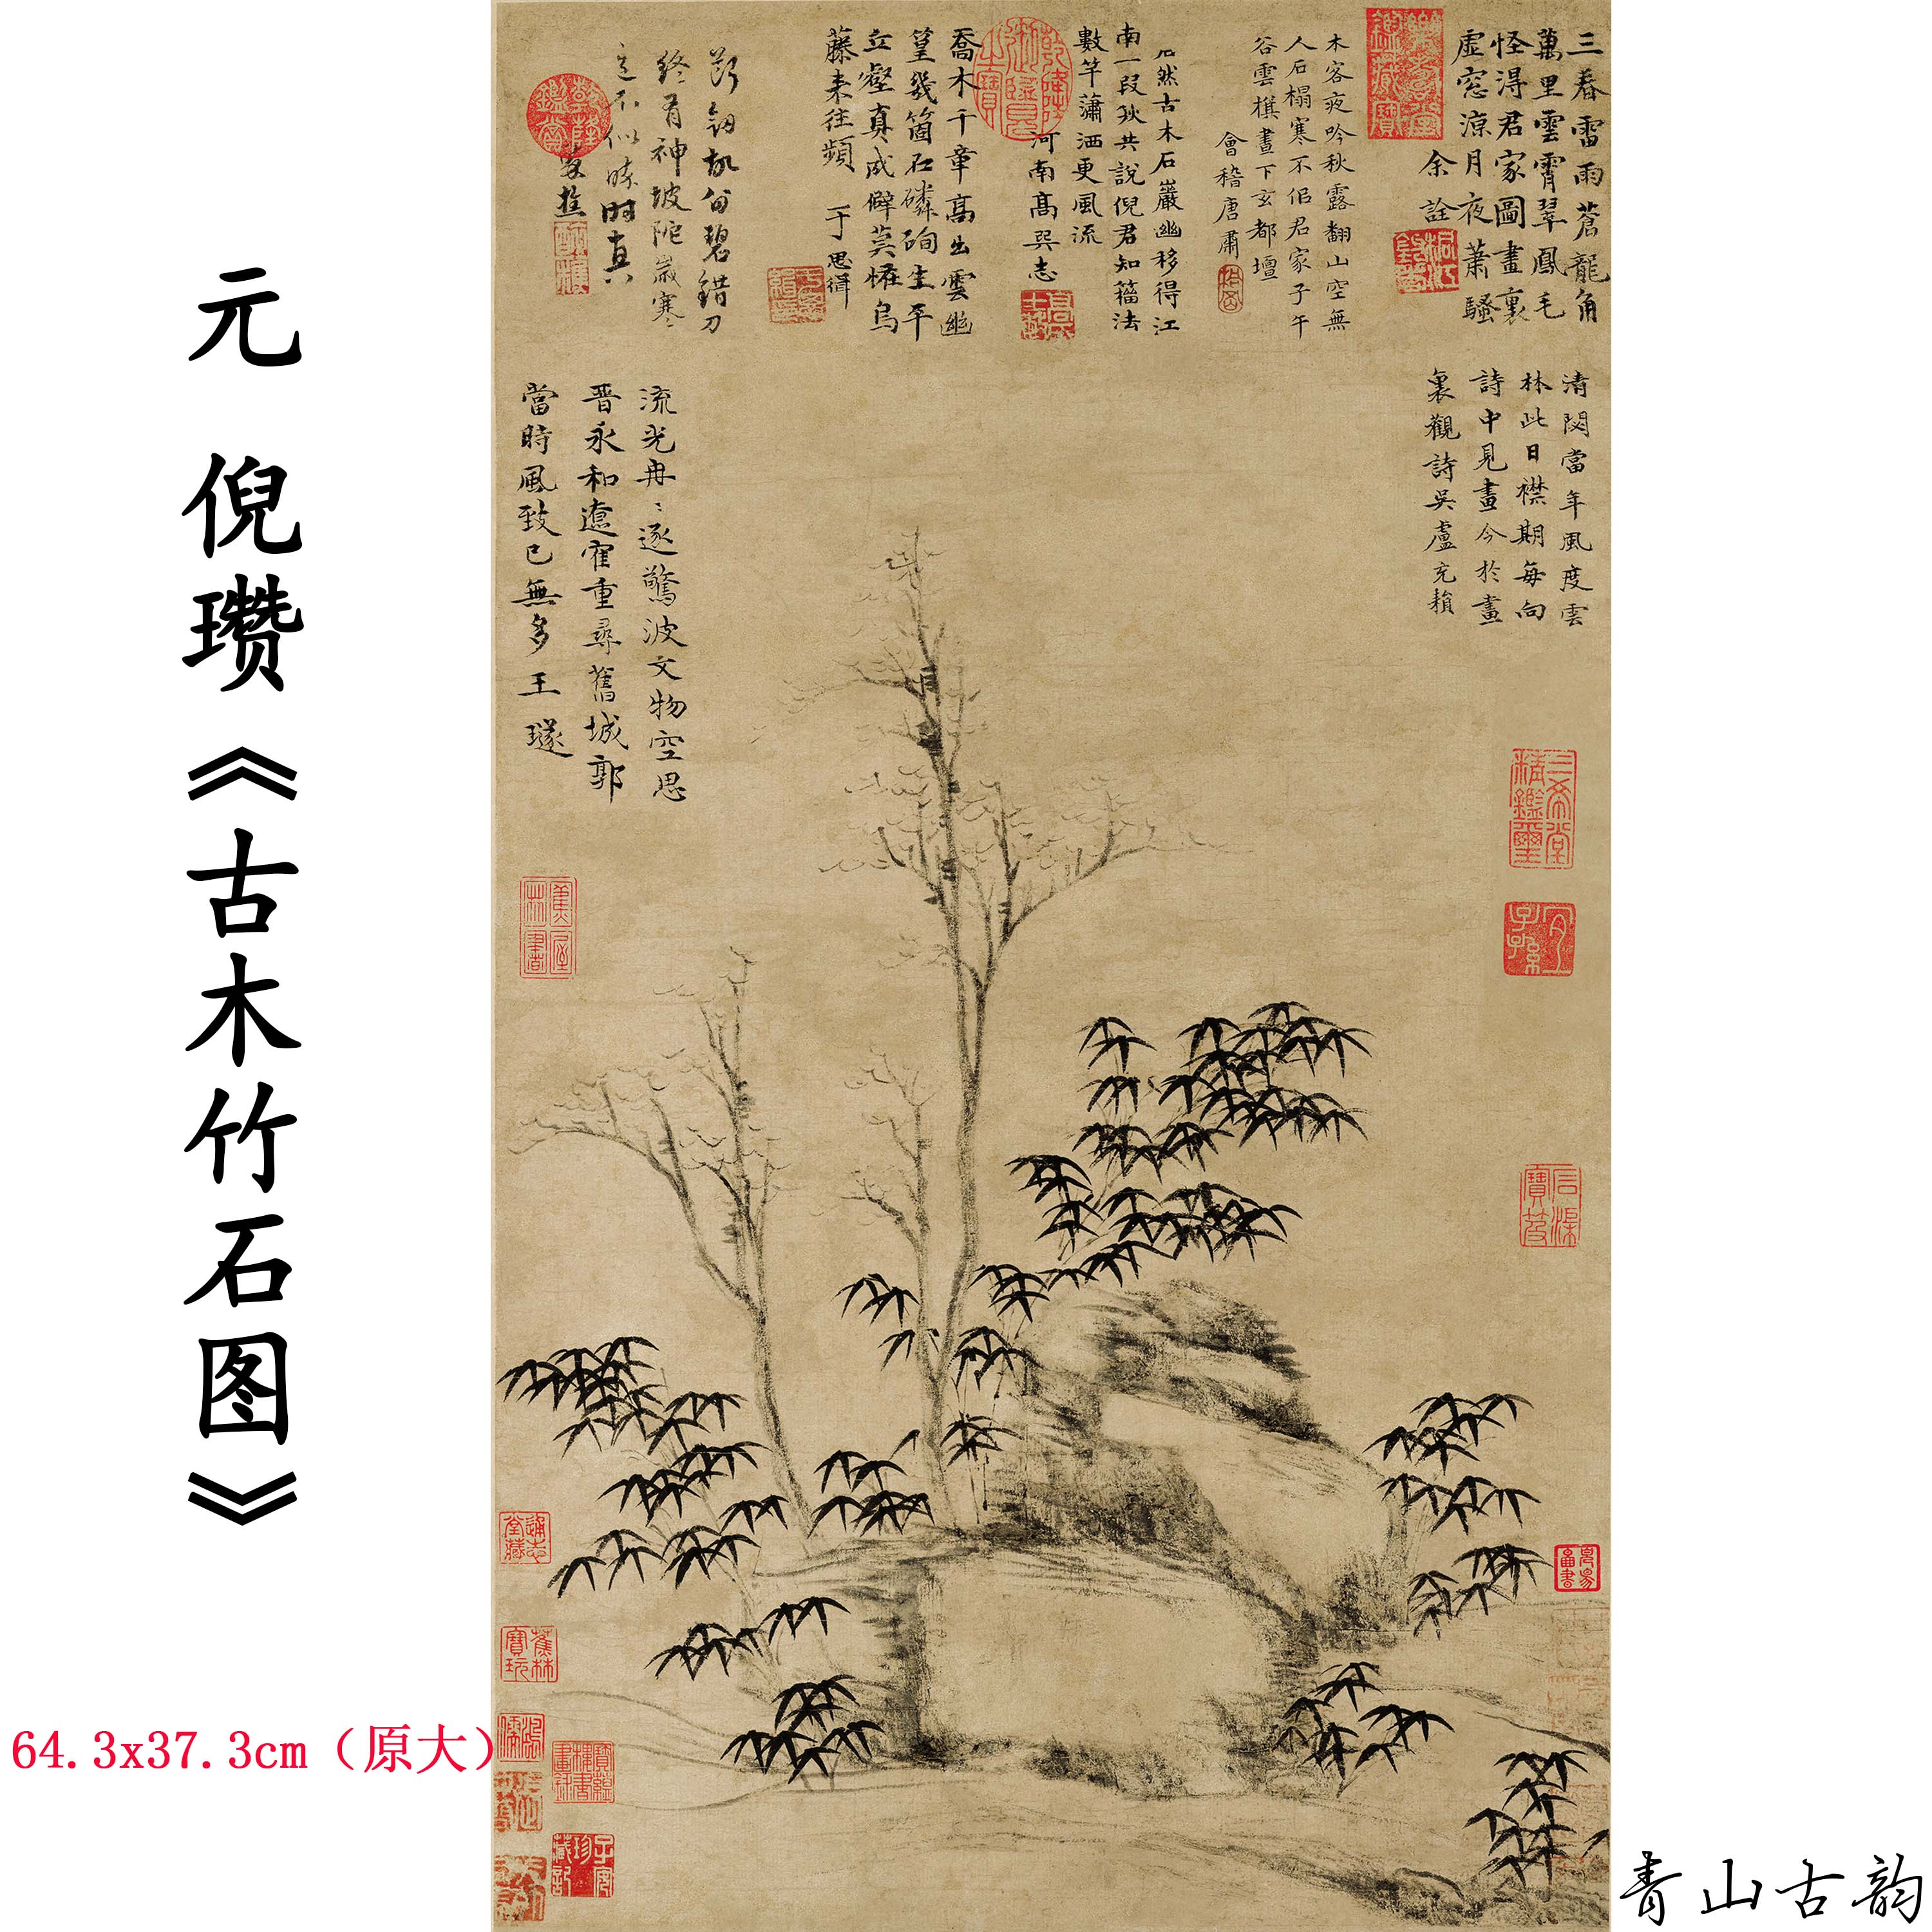 元 倪瓒《古木竹石图》
64.3x37.3cm（原大）
三春雷雨蒼龍角
萬里雲霄翠鳳毛
怪得君家圖畫裏
虛窓涼月夜蕭騷
余詮
木客夜吟秋露翻山空無
人石榻寒不侶君家子午
谷雲橫晝下玄都壇
會稽唐肅
古木石巖幽移得江
南一段秋共說倪君知籀法
數竿瀟洒更風流
河南高巽志
喬木千章高出雲幽
篁幾箇石磷硐生平
立壑真成僻莫恠烏
藤来往頻 于思緝
碧錯刀
終有神坡陀歲寒
似時真
清閟當年風度雲
林此日襟期每向
詩中見畫今於畫
裏觀詩吳盧充頪
流光冉冉逐驚波文物空思
晋永和遼寉重尋舊城郭
當時風致已無多王璲
三希堂
精鑑璽
宜子孫
蕉林
寶玩
子安
珍藏
記
青山古韵